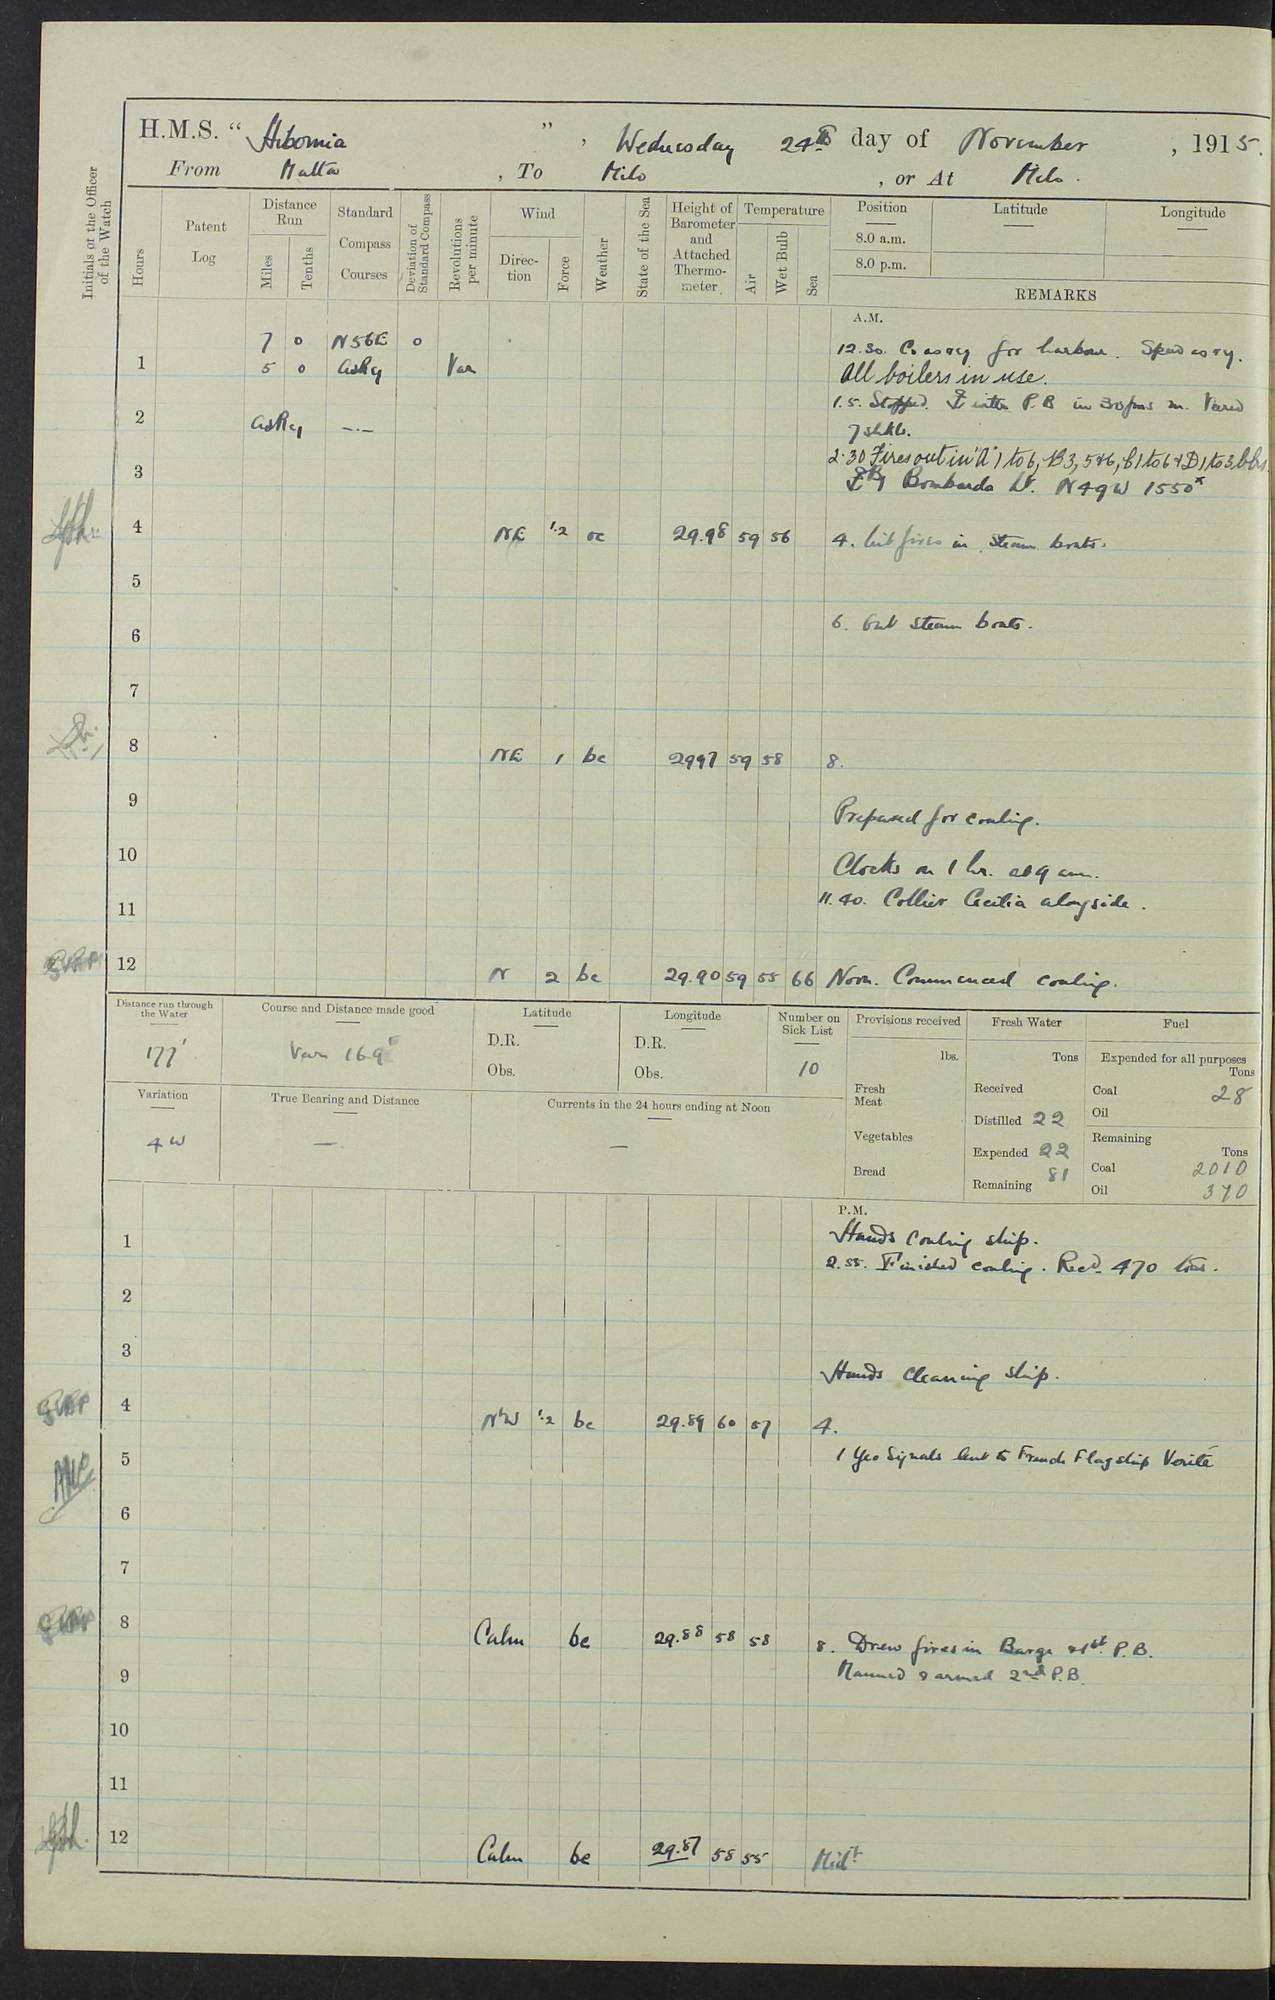 H.M.S. “ Hibernia ” , Wednesday 24th day of November , 1915.
From Malta , To Milo , or At Milo.
Initials of the Officer of the Watch
Hours
Patent Log
Distance Run
Miles
Tenths
Standard Compass Courses
Deviation of Standard Compass
Revolutions per minute
Wind
Direc-tion
Force
Weather
State of the Sea
Height of Barometer and Attached Thermo-meter
Temperature
Air
Wet Bulb
Sea
Position
Latitude
Longitude
8.0 a.m.
8.0 p.m.
REMARKS
A.M.
7 0 N56E 0
12.30. Co as req for harbour. Speed as req.
1 5 0 as Req Var
All boilers in use.
1.5. Stopped. P.B in 30 fms m. Veered
2 as Req —.—
7 shkls.
2.30 Fires out in "A" 1 to 6, B3, 5&6, C1 to 6 & D1 to 3 blrs
3
Bombarda Lt. N49W 1550x
4 NE 1.2 oc 29.98 59 56 4. Lit fires in steam boats.
5
6 6. Out steam boats.
7
8 NE 1 bc 2997 59 58 8.
9
Prepared for coaling.
10
Clocks on 1 hr. at 9 am.
11 11.40. Collier Cecilia alongside.
12 N 2 bc 29.90 59 55 66 Noon. Commenced coaling.
Distance run through the Water
177'
Course and Distance made good
Var 169
Latitude
D.R.
Obs.
Longitude
D.R.
Obs.
Number on Sick List
10
Provisions received
lbs.
Fresh Meat
Vegetables
Bread
Fresh Water
Tons
Received
Distilled 22
Expended 22
Remaining 81
Fuel
Expended for all purposes
Tons
Coal 28
Oil
Remaining
Tons
Coal 2010
Oil 370
Variation
4 W
True Bearing and Distance
—
Currents in the 24 hours ending at Noon
—
P.M.
1 Hands coaling ship.
2.55. Finished coaling. Recd. 470 tons.
2
3
Hands cleaning ship.
4 N'W 1.2 bc 29.89 60 57 4.
5 1 Yeo Signals lent to French Flagship Verité
6
7
8 Calm bc 29.88 58 58 8. Drew fires in Barge & 1st P.B.
9 Manned & armed 2nd P.B.
10
11
12 Calm bc 29.87 58 55 Midt